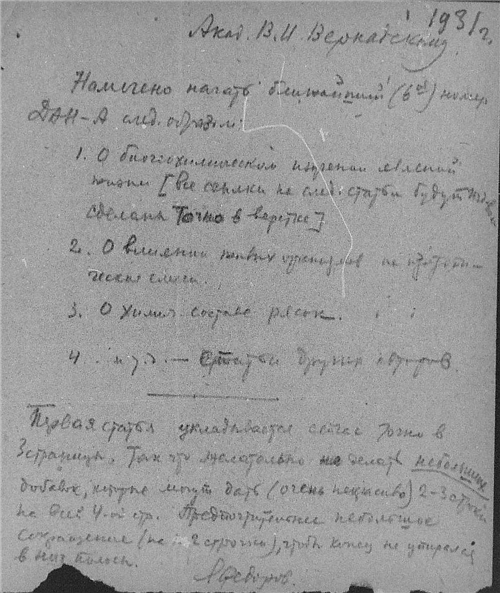 1931 г.
Акад. В. И. Вернадскому
Намечено начать ближайший (6ой) номер
ДАН-А след. образом:
1. О биогеохимическом изучении явлений
жизни [все ссылки на след. статьи будут
сделаны точно в верстке]
2. О влиянии живых организмов на
ческие смеси.
3. О химич. составе рясок.
4. и т. д. — статьи других авторов.
Первая статья укладывается сейчас точно в
3 страницы. Так что желательно не делать небольших
добавок, которые могут дать (очень некрасиво) 2-3 строки
на дней 4-ой стр. Предпочтительнее небольшое
сокращение (на 1-2 строчки), чтобы конец не упирался
в низ полосы.
Федоров.